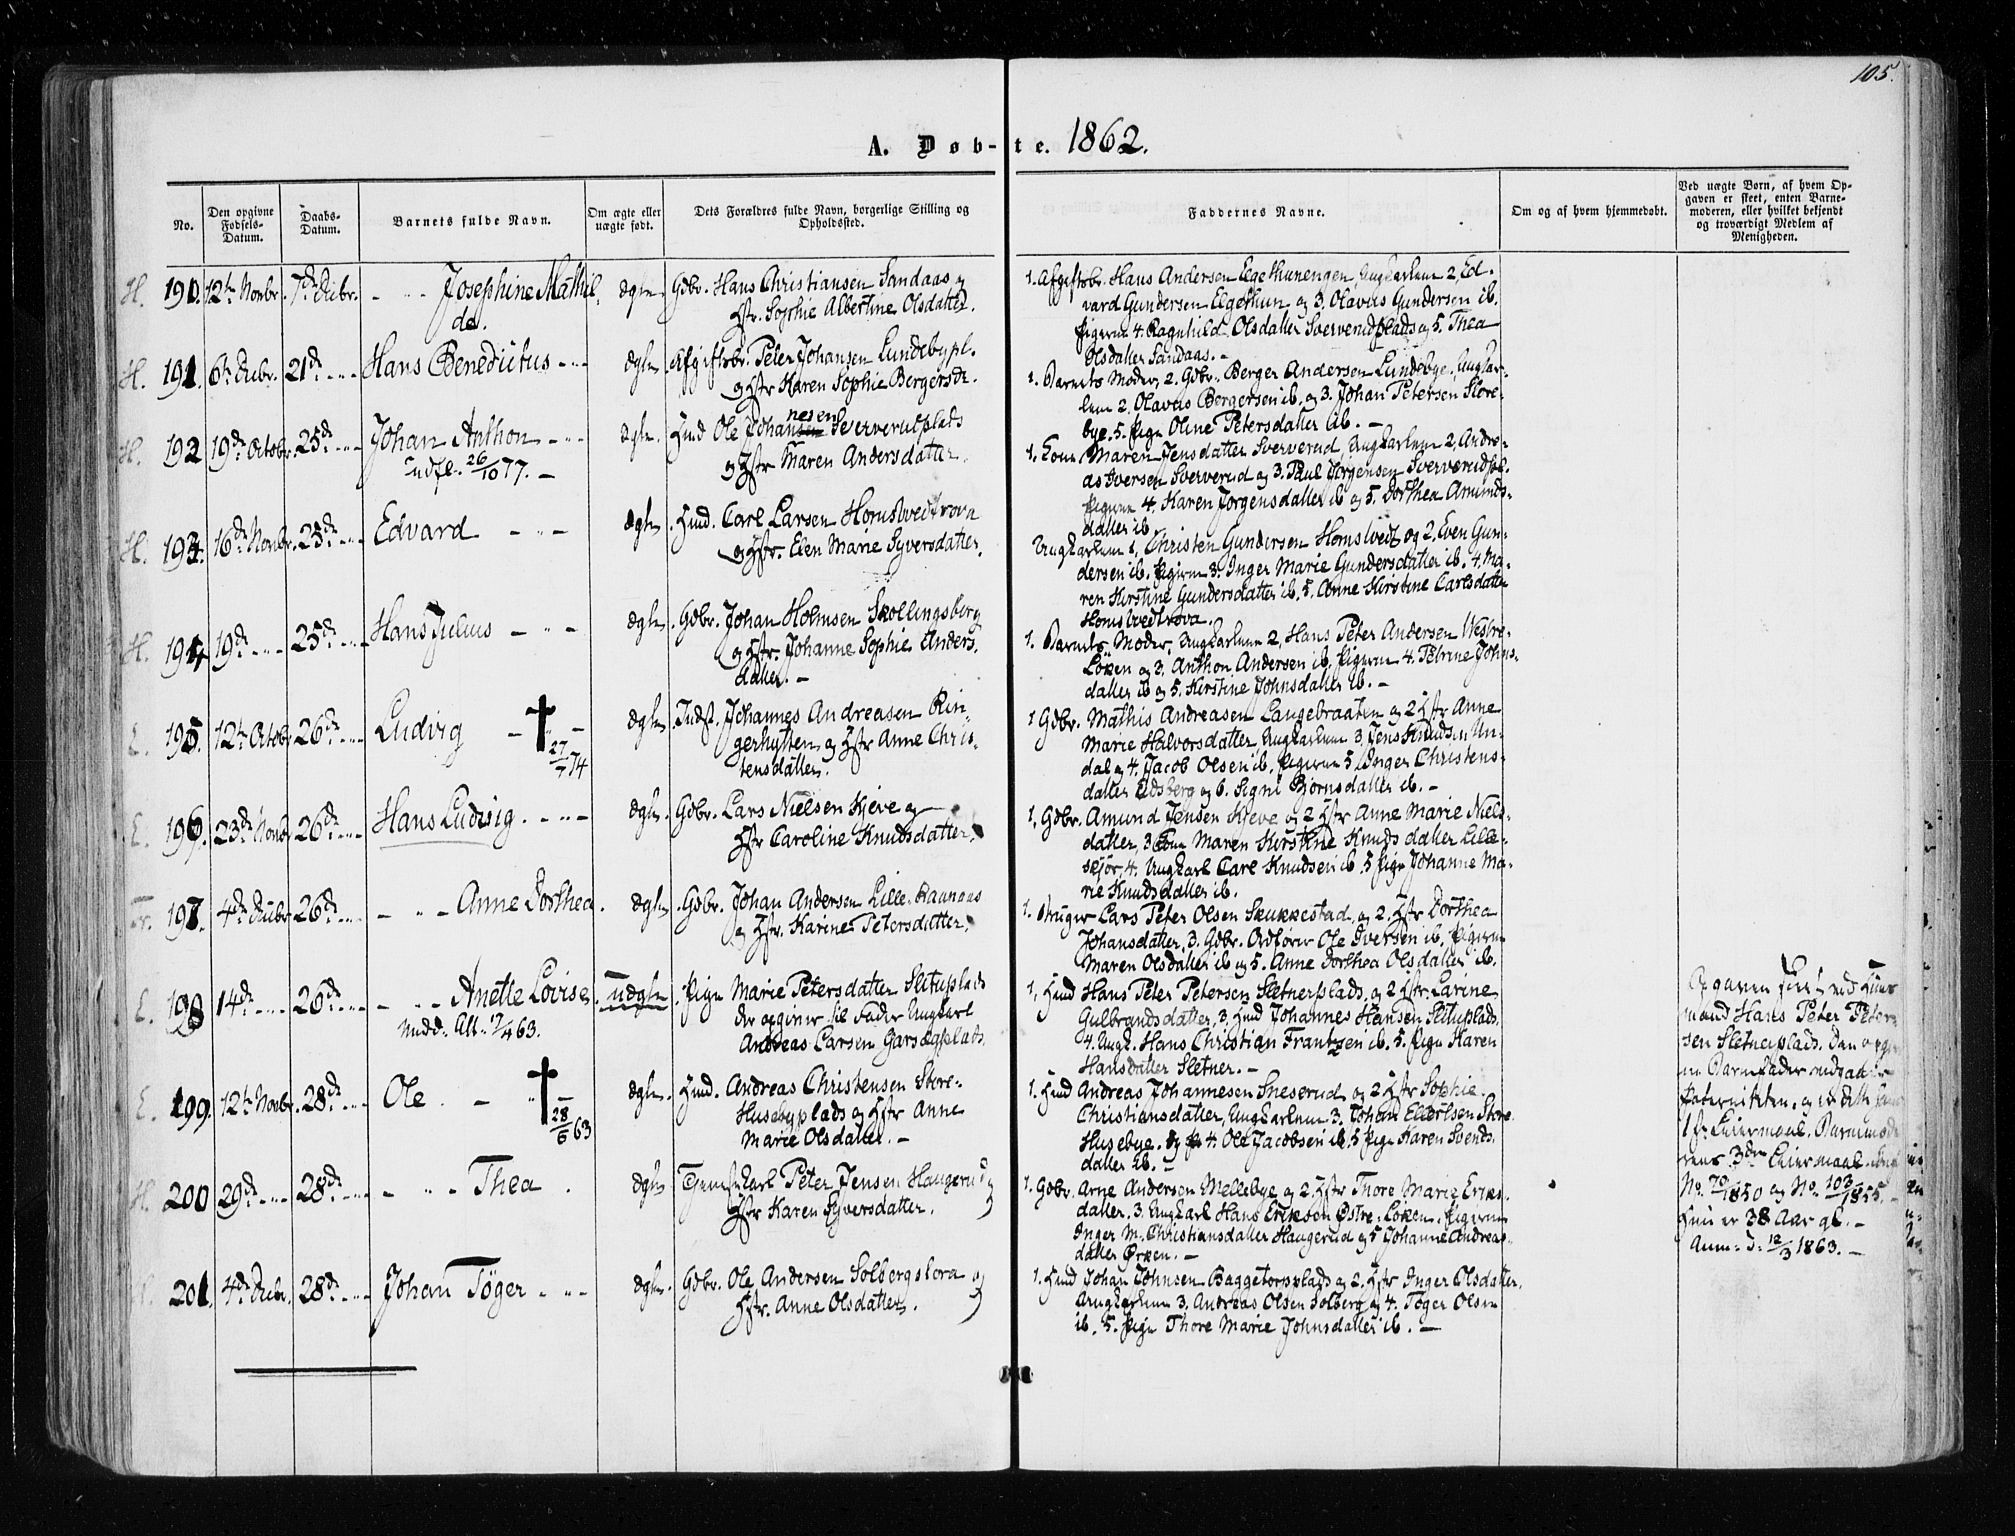 105.
A. Døb-te. 1862.
No.
Den opgivne Fødsels-Datum.
Daabs-Datum.
Barnets fulde Navn.
Om ægte eller uægte født.
Dets Forældres fulde Navn, borgerlige Stilling og Opholdssted.
Faddernes Navne.
Om og af hvem hjemmedøbt.
Ved uægte Børn, af hvem Opgaven er skeet, enten Barnemoderen, eller hvilket bekjendt og troværdigt Medlem af Menigheden.
H. 190. 12te Novbr. 7de Decbr. - " - Josephine Mathil
de.
ægte. Gdbr. Hans Christiansen Sandaas og
Hstr. Sophie Albertine Olsdatter.
1. Afgiftsbr. Hans Andersen Ungkarlene 2, Ed-
vard Gundersen og 3. Olavus Gundersen ib.
Pigerne 4. Ragnhild Olsdatter Sververudplads og 5. Thea
Olsdatter Sandaas. -
H. 191. 6te Decbr. 21de - " - Hans Benedictus - " -
ægte. Afgiftsbr. Peter Johansen Lundebypl.
og Hstr Karen Sophie Bergersdr.
1. Barnets Moder, 2. Gdbr. Berger Andersen Lundebye, Ungkar-
lene 2. Olavus Bergersen ib. og 3. Johan Petersen Store-
bye. 5. Pige Oline Petersdatter ib. -
H. 192 19de Octobr. 25de - " - Johan Anthon - " -
udfl. 26/10 77. -
ægte. Hmd Ole Johannesen Sververudplads
og Hstr Maren Andersdatter
1. Kone Maren Jensdatter Sververud, Ungkarlene 2, Andre-
as Iversen Sververud og 3. Paul Jørgensen Sververudpl.
Pigerne 4. Karen Jørgensdatter ib og 5. Dorthea Amunds-
datter ib
H. 193. 16de Novbr. 25de - " - Edvard - " -
ægte. Hmd. Carl Larsen Hornslvedtrova
og Hstr. Elen Marie Syversdatter.
Ungkarlene 1, Christen Gundersen Hornslvedt og 2. Even Gun-
dersen ib. Pigerne 3. Inger Marie Gundersdatter ib. 4. Ma-
ren Kirstine Gundersdatter ib. 5. Anne Kirstine Carlsdatter
Hornslvedtrova.
H. 194 19de - " - 25de - " - Hans Julius - " -
ægte. Gdbr. Johan Holmsen Skollingsberg
og Hstr. Johanne Sophie Anders-
datter. -
1. Barnets Moder, Ungkarlene 2, Hans Peter Andersen Westre-
Løken og 3. Anthon Andersen ib. Pigerne 4. Petrine Johns-
datter ib og 5. Kirstine Johnsdatter ib. -
E. 195. 12te Octobr 26de - " - Ludvig - † -
27/7 74
ægte. Indst. Johannes Andreasen Rin-
gerhytten og Hstr Anne Chris-
tensdatter.
1 Gdbr. Mathis Andreasen Langebraaten og 2 Hstr Anne
Marie Halvorsdatter, Ungkarlene 3, Jens Knudsen Un-
dal og 4. Jacob Olsen ib. Pigerne 5 Inger Christens-
datter Eidsberg og 6. Signi Bjørnsdatter ib. -
E. 196. 23de Novbr 26de - " - Hans Ludvig. - " -
ægte. Gdbr. Lars Nielsen Kjeve og
Hstr Caroline Knudsdatter.
1. Gdbr. Amund Jensen Kjeve og 2 Hstr Anne Marie Niels-
datter, 3 Kone Maren Kirstine Knudsdatter Lille-
skjør, 4. Ungkarl Carl Knudsen ib. 5 Pige Johanne Ma-
rie Knudsdatter ib.
Tr. 197. 4de Decbr 26de - " - - " - Anne Dorthea.
ægte. Gdbr. Johan Andersen Lille-Raanaas
og Hstr. Karine Petersdatter.
1. Bruger Lars Peter Olsen Skukkestad, og 2. Hstr Dorthea
Johansdatter, 3. Gdbr. Ordfører Ole Iversen ib, Pigerne
Maren Olsdatter ib og 5. Anne Dorthea Olsdatter ib.
E. 198 14de - " - 26de - " - - " - Anette Lovise.
Medd. Att. 17/4 63.
uægte. Pige Marie Petersdatter Slituplads
der opgiver til Fader Ungkarl
Andreas Larsen Garsegplads.
1. Hmd Hans Peter Petersen Sletnerplads, og 2 Hstr. Larine
Gulbrandsdatter, 3. Hmd Johannes Hansen Slituplads.
4. Ungk. Hans Christian Frantzen ib. 5. Pige Karen
Hansdatter Sletner. -
Opgaven skeet ved Huus
mand Hans Peter Peter-
sen Sletnerplads. Den opgiv
ne Barnefader vedgaaer
Paterniteten, og er dette hans
1ste Leiermaal, Barnemode
rens 3die Leiermaal
No. 70/1850 og No. 103/1855. -
Hun er 38 Aar gl. -
Anm. d. 12/3 1863. -
E. 199. 12te Novbr. 28de - " - Ole. - † -
28/6 63
ægte. Hmd. Andreas Christensen Store-
Husebyplads og Hstr Anne
Marie Olsdatter. -
1. Hmd Andreas Johannesen Sneserud og 2 Hstr Sophie
Christiansdatter, Ungkarlene 3. Johan Ellefsen Store
Husebye. 4. Ole Jacobsen ib. 5 Pige Karen Svends-
datter ib. -
H. 200 29de - " - 28de - " - - " - Thea.
ægte Tjenestekarl Peter Jensen Haugerud og
Hstr Karen Syversdatter.
1. Gdbr. Arne Andersen Mellebye og 2. Hstr Thore Marie Eriks-
datter. 3. Ungkarl Hans Erikson Østre-Løken. Pigerne
Inger M. Christiansdatter Haugerud og 5 Johanne Andreas-
datter Ørken. -
H. 201. 4de Decbr. 28de - " - Johan Tøger - " -
ægte. Gdbr. Ole Andersen Solbergstora og
Hstr. Anne Olsdatter.
1. Hmd Johan Johnsen Baggetorpplads og 2. Hstr Inger Olsdatter.
Ungkarlene 3. Andreas Olsen Solberg og 4. Tøger Olsen
ib. 5. Pige Thore Marie Johnsdatter ib. -